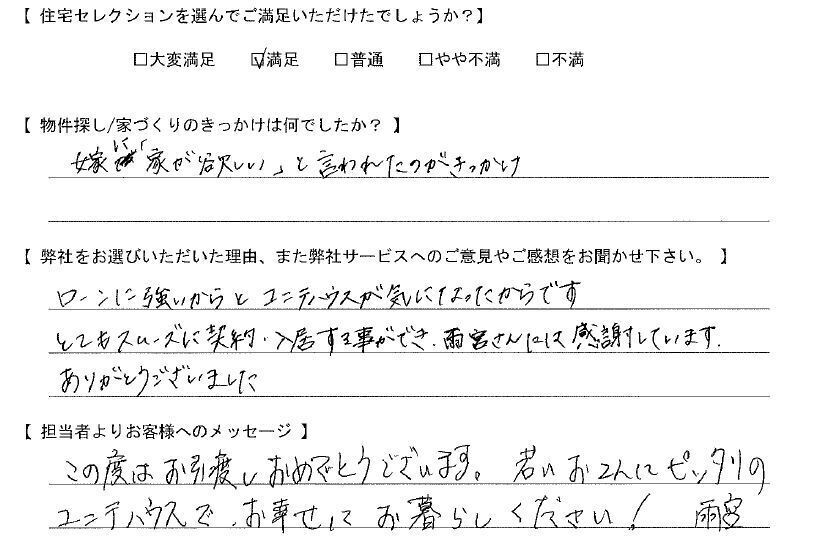 【 住宅セレクションを選んでご満足いただけたでしょうか？】
□大変満足 ☑満足 □普通 □やや不満 □不満
【 物件探し/家づくりのきっかけは何でしたか？ 】
嫁に「家が欲しい」と言われたのがきっかけ
【 弊社をお選びいただいた理由、また弊社サービスへのご意見やご感想をお聞かせ下さい。 】
ローンに強いからと ユニテハウスが気になったからです
とてもスムーズに契約・入居する事ができ、雨宮さんには感謝しています。
ありがとうございました
【 担当者よりお客様へのメッセージ 】
この度はお引渡しおめでとうございます。若いお二人にピッタリの
ユニテハウスで、お幸せにお暮らしください！ 雨宮